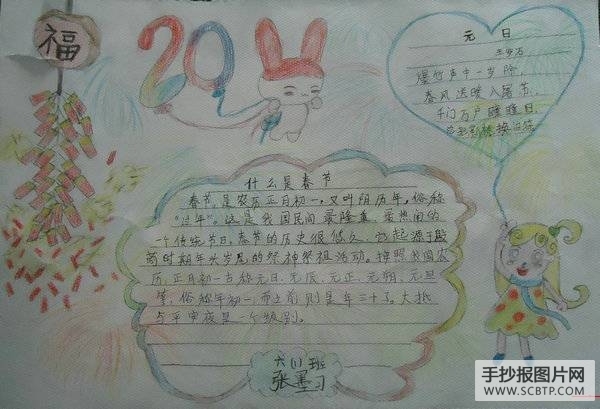 福
20
元 日
王安石
爆竹声中一岁除
春风送暖入屠苏
千门万户曈曈日
总把新桃换旧符
什么是春节
春节,是农历正月初一,又叫阴历年,俗称
“过年”。这是我国民间最隆重、最热闹的
一个传统节日。春节的历史很悠久,它起源于殷
商时期年头岁尾的祭神祭祖活动。按照我国农
历,正月初一古称元日、元辰、元正、元朔、元旦
等,俗称年初一,而上前则是年三十了,大抵
与平安夜是一个级别。
六(1)班
张墨
手抄报图片网
WWW.SCBTP.COM